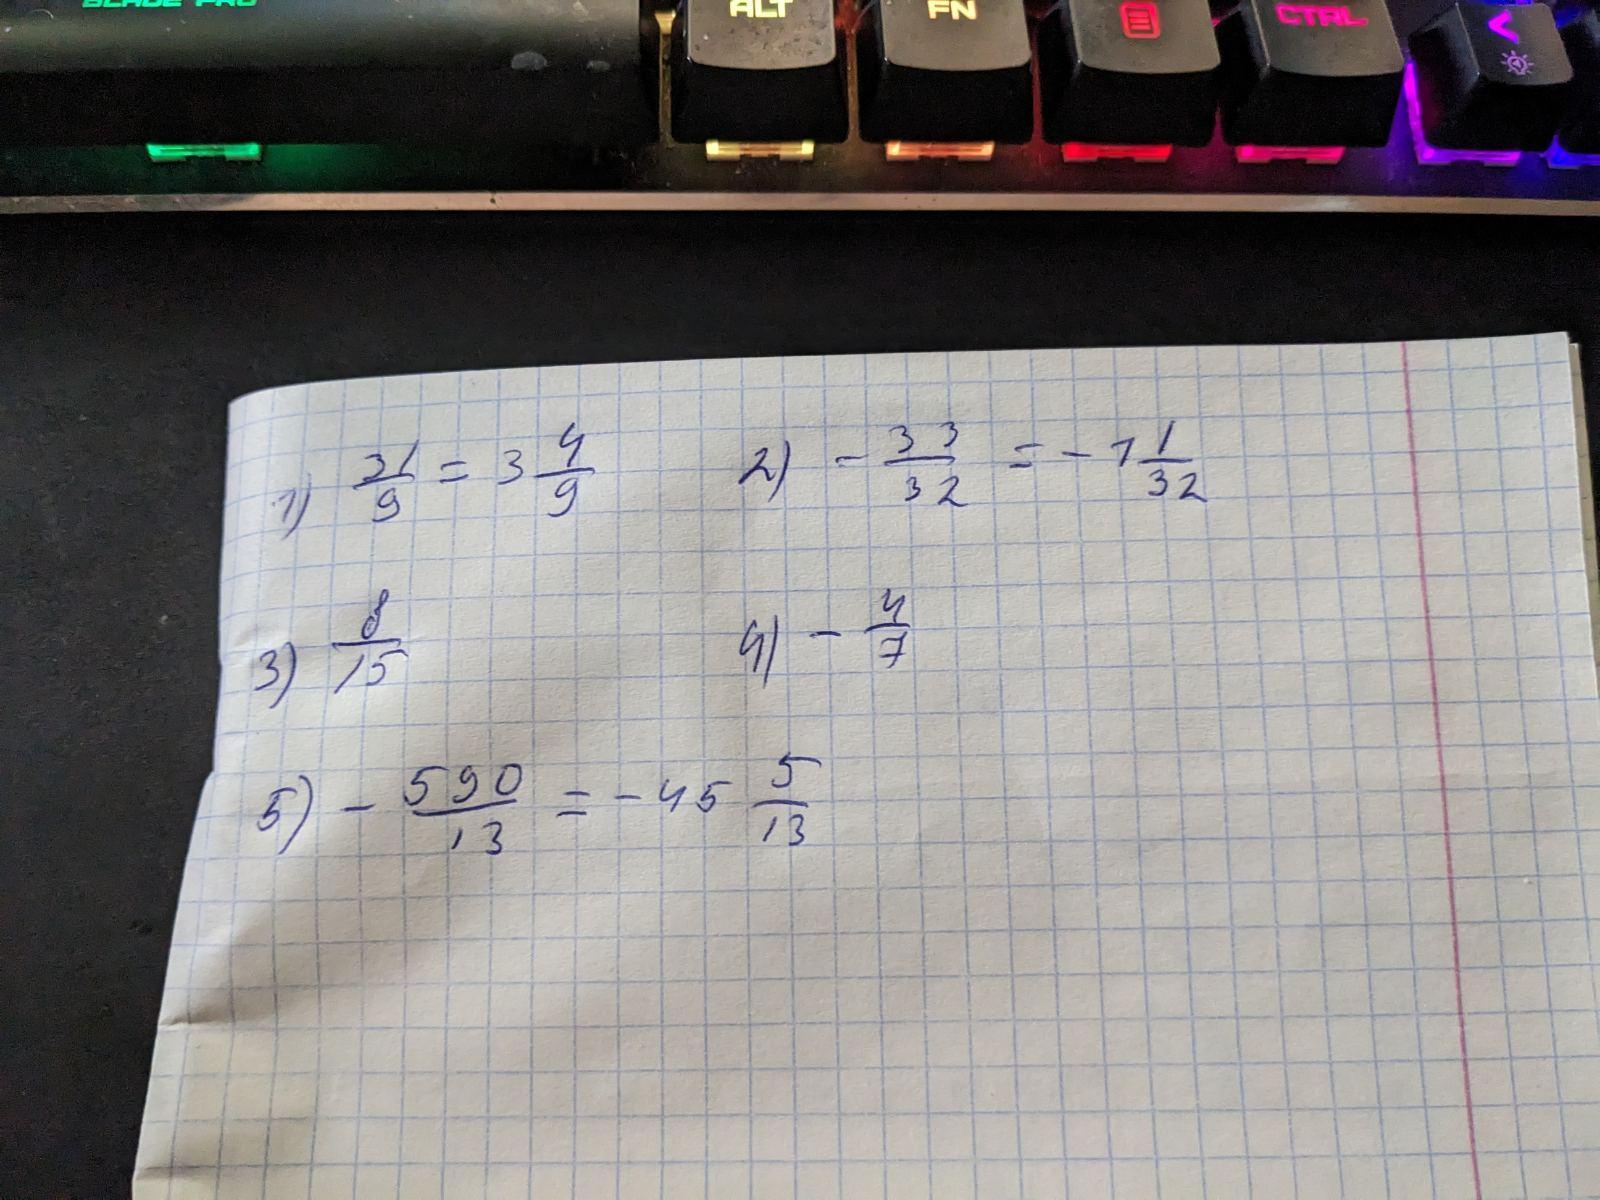 BLADE PRO
ALT FN CTRL <
1) 31/9 = 3 4/9 2) - 33/32 = - 1 1/32
3) 8/15 4) - 4/7
5) - 590/13 = - 45 5/13